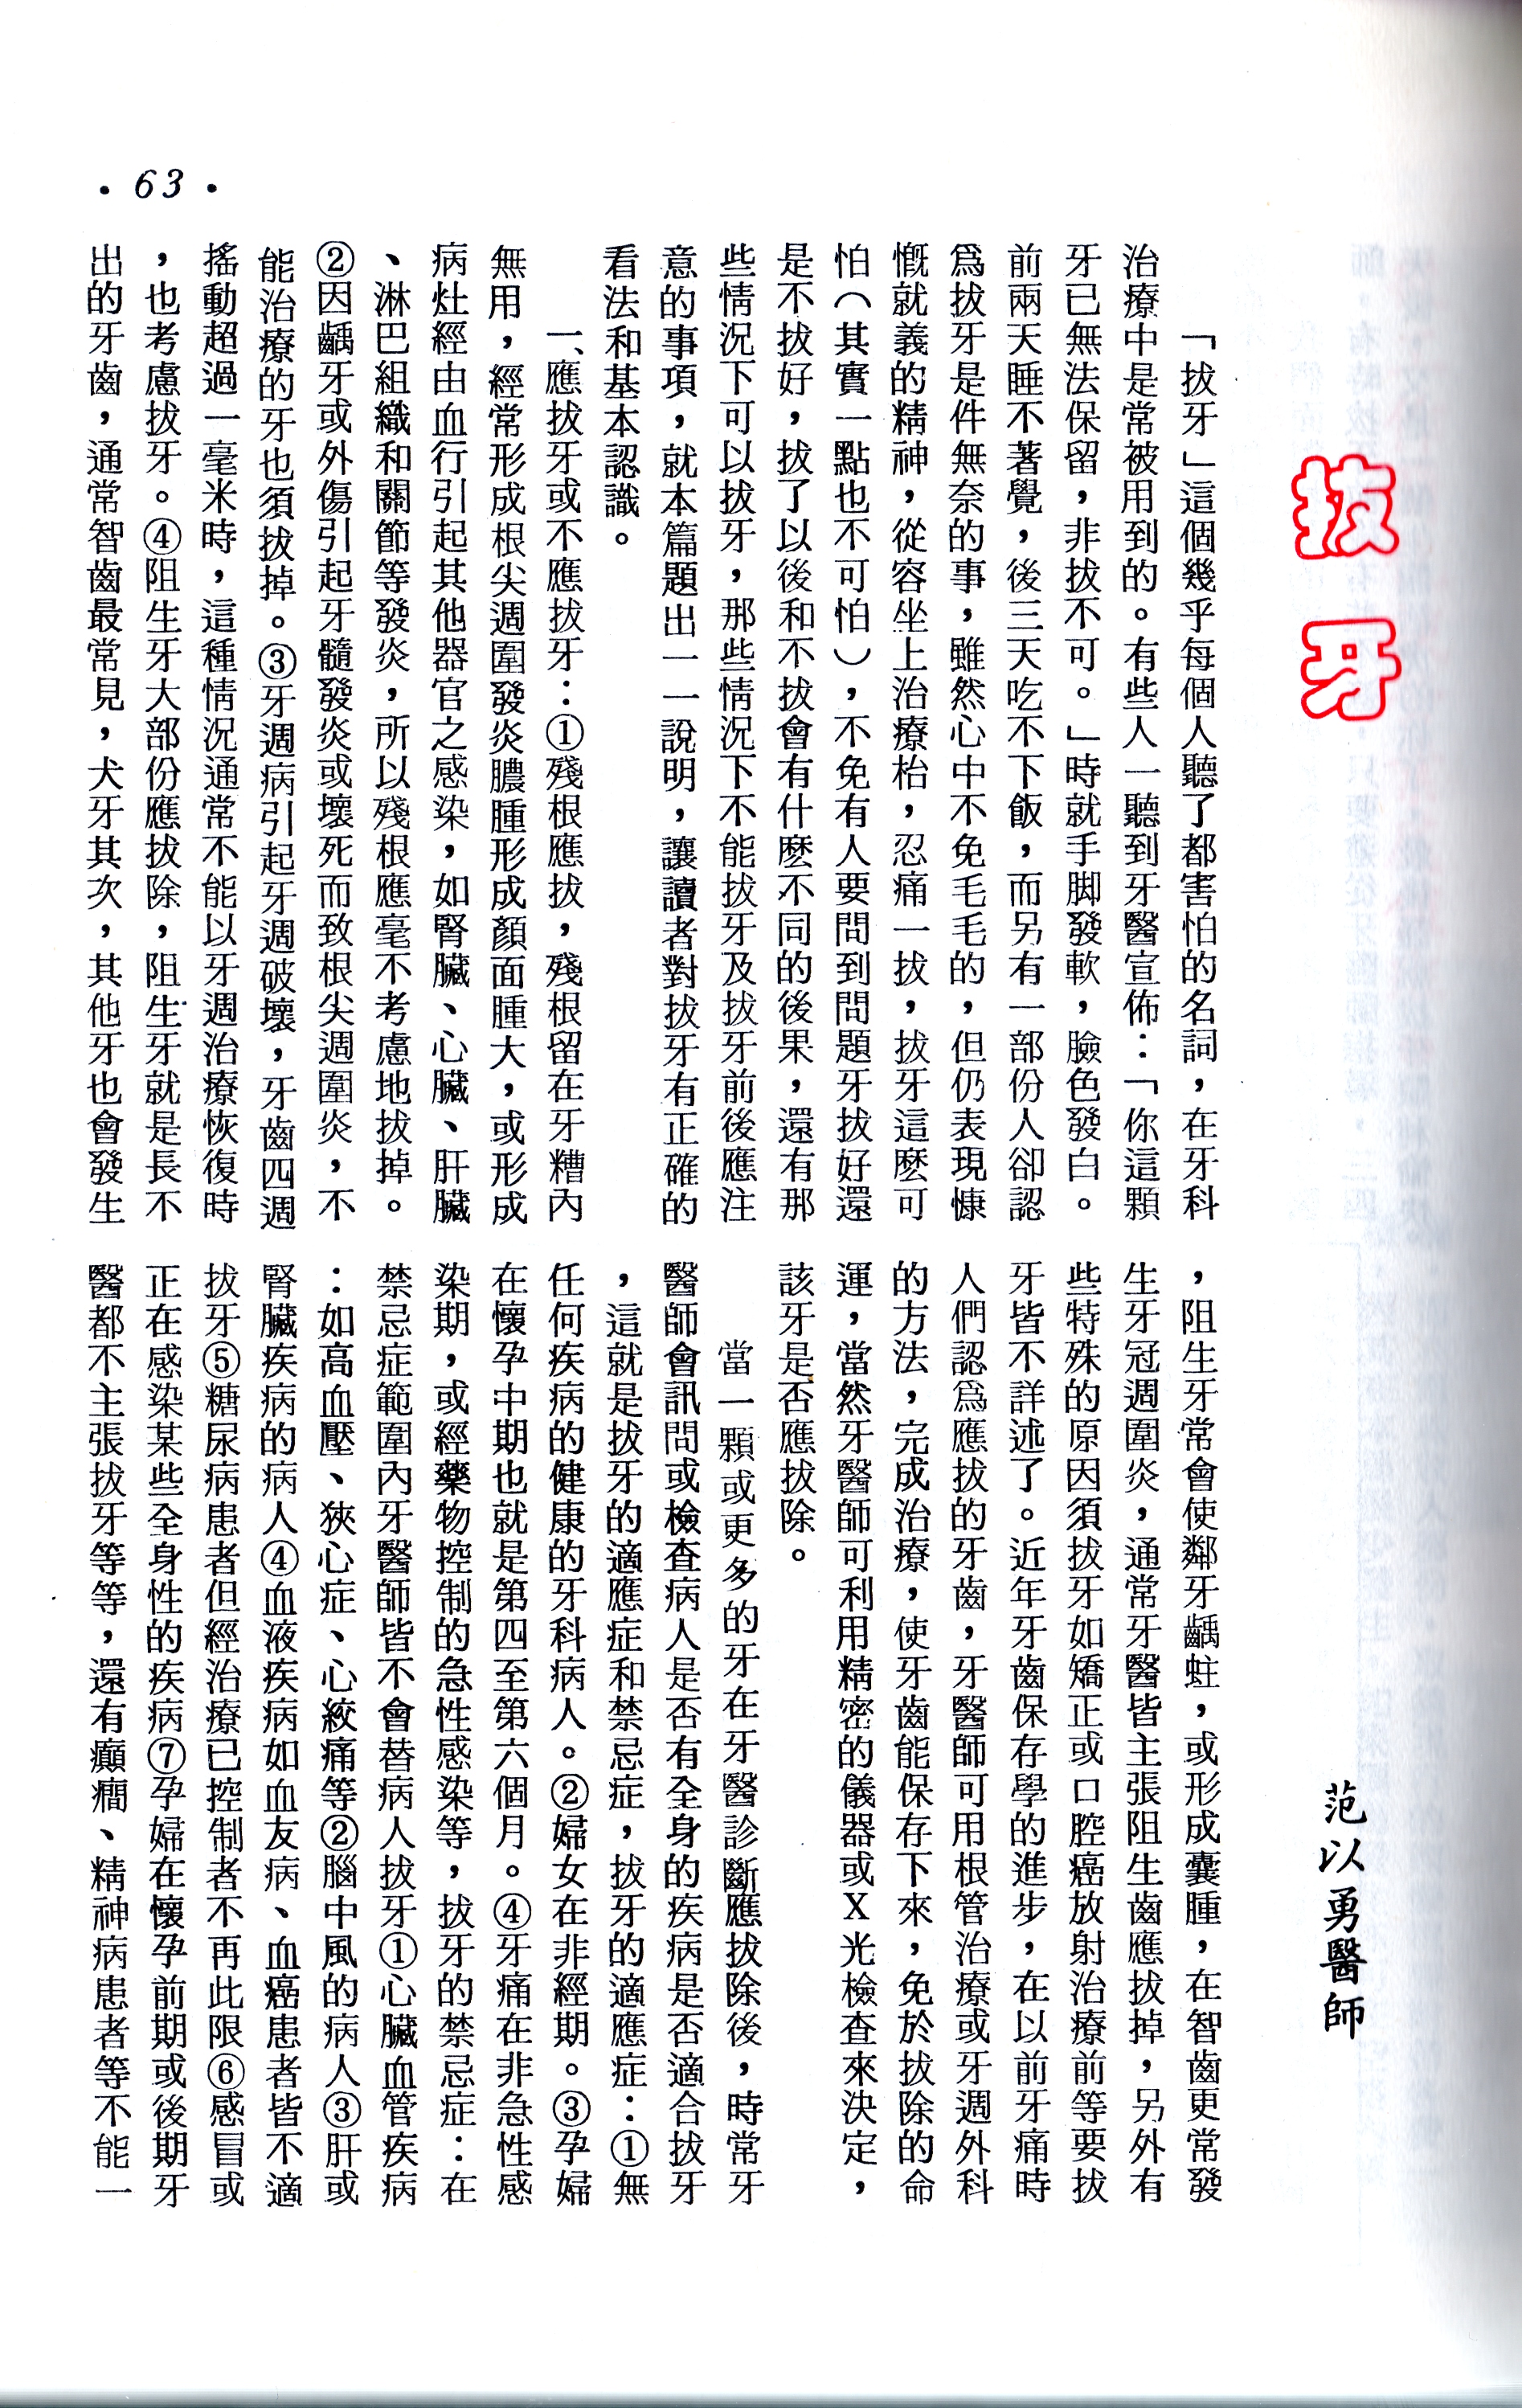 拔牙
范以勇醫師
「拔牙」這個幾乎每個人聽了都害怕的名詞，在牙科
治療中是常被用到的。有些人一聽到牙醫宣佈：「你這顆
牙已無法保留，非拔不可。」時就手脚發軟，臉色發白。
前兩天睡不著覺，後三天吃不下飯，而另有一部份人卻認
爲拔牙是件無奈的事，雖然心中不免毛毛的，但仍表現慷
慨就義的精神，從容坐上治療枱，忍痛一拔，拔牙這麽可
怕（其實一點也不可怕），不免有人要問到問題牙拔好還
是不拔好，拔了以後和不拔會有什麽不同的後果，還有那
些情況下可以拔牙，那些情況下不能拔牙及拔牙前後應注
意的事項，就本篇題出一一說明，讓讀者對拔牙有正確的
看法和基本認識。
一、應拔牙或不應拔牙：①殘根應拔，殘根留在牙糟內
無用，經常形成根尖週圍發炎膿腫形成顏面腫大，或形成
病灶經由血行引起其他器官之感染，如腎臟、心臟、肝臟
、淋巴組織和關節等發炎，所以殘根應毫不考慮地拔掉。
②因齲牙或外傷引起牙髓發炎或壞死而致根尖週圍炎，不
能治療的牙也須拔掉。③牙週病引起牙週破壞，牙齒四週
搖動超過一毫米時，這種情況通常不能以牙週治療恢復時
，也考慮拔牙。④阻生牙大部份應拔除，阻生牙就是長不
出的牙齒，通常智齒最常見，犬牙其次，其他牙也會發生
，阻生牙常會使鄰牙齲蛀，或形成囊腫，在智齒更常發
生牙冠週圍炎，通常牙醫皆主張阻生齒應拔掉，另外有
些特殊的原因須拔牙如矯正或口腔癌放射治療前等要拔
牙皆不詳述了。近年牙齒保存學的進步，在以前牙痛時
人們認爲應拔的牙齒，牙醫師可用根管治療或牙週外科
的方法，完成治療，使牙齒能保存下來，免於拔除的命
運，當然牙醫師可利用精密的儀器或X光檢查來決定，
該牙是否應拔除。
當一顆或更多的牙在牙醫診斷應拔除後，時常牙
醫師會訊問或檢查病人是否有全身的疾病是否適合拔牙
，這就是拔牙的適應症和禁忌症，拔牙的適應症：①無
任何疾病的健康的牙科病人。②婦女在非經期。③孕婦
在懷孕中期也就是第四至第六個月。④牙痛在非急性感
染期，或經藥物控制的急性感染等，拔牙的禁忌症：在
禁忌症範圍內牙醫師皆不會替病人拔牙①心臟血管疾病
：如高血壓、狹心症、心絞痛等②腦中風的病人③肝或
腎臟疾病的病人④血液疾病如血友病、血癌患者皆不適
拔牙⑤糖尿病患者但經治療已控制者不再此限⑥感冒或
正在感染某些全身性的疾病⑦孕婦在懷孕前期或後期牙
醫都不主張拔牙等等，還有癲癇、精神病患者等不能一
·63·